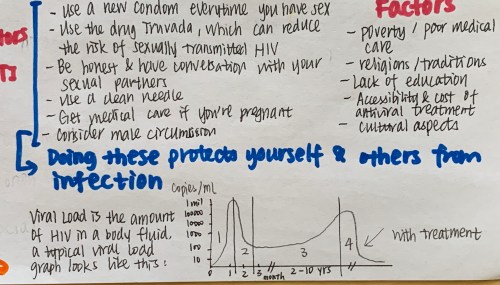 - Use a new condom everytime you have sex
- Use the drug Truvada, which can reduce
the risk of sexually transmitted HIV
- Be honest & have conversation with your
sexual partners
- Use a clean needle
- Get medical care if you're pregnant
- consider male circumcision
Doing these protects yourself & others from
infection
Factors
- poverty / poor medical
care
- religions / traditions
- Lack of education
- Accessibility & cost of
antiviral treatment
- cultural aspects
Viral Load is the amount
of HIV in a body fluid.
a typical viral load
graph looks like this:
copies/ml
1 mil
100000
10000
1000
100
10
1
2
3
4
0 1 2 3 // 2-10 yrs //
month
with treatment